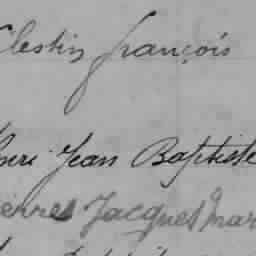 Célestin françois
Jean Baptiste
Pierre Jacques Mar